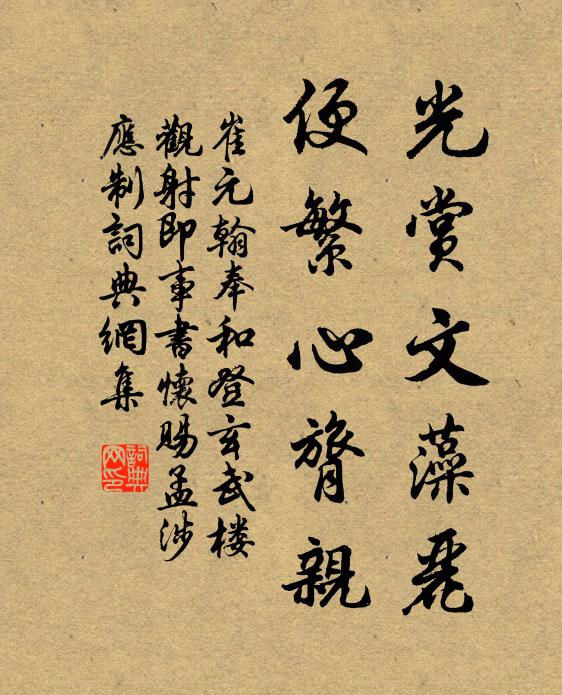 光賞文藻麗
便繁心膂親
崔元翰奉和登玄武楼
觀射即事書懷賜孟涉
應制詞典網集
詞典網印